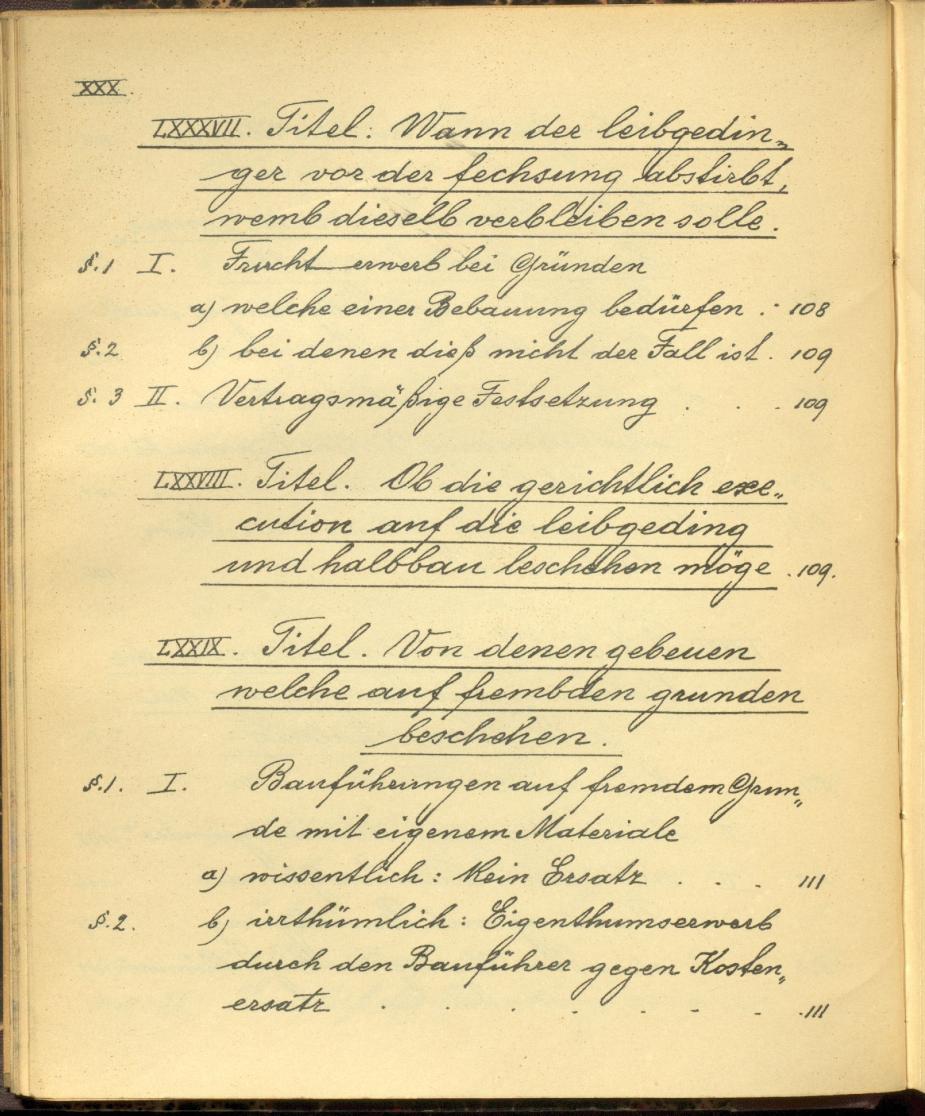 XXX.
LXXXVII. Titel: Wann der leibgedin„
ger vor der fechsung abstirbt,
wemb dieselb verbleiben solle.
§.1 I. Frucht erwerb bei Gründen
a) welche einer Bebauung bedürfen . . 108
§.2 b) bei denen dieß nicht der Fall ist . 109
§. 3 II. Vertragsmäßige Festsetzung . . . 109
LXXVIII. Titel. Ob die gerichtlich exe„
cution auf die leibgeding
und halbbau beschehen möge . 109.
LXXIX. Titel. Von denen gebeuen
welche auf frembden grunden
beschehen.
§.1. I. Bauführungen auf fremdem Grun„
de mit eigenem Materiale
a) wissentlich: Kein Ersatz . . . 111
§.2. b) irrthümlich: Eigenthumserwerb
durch den Bauführer gegen Kosten„
ersatz . . . . . . . . 111